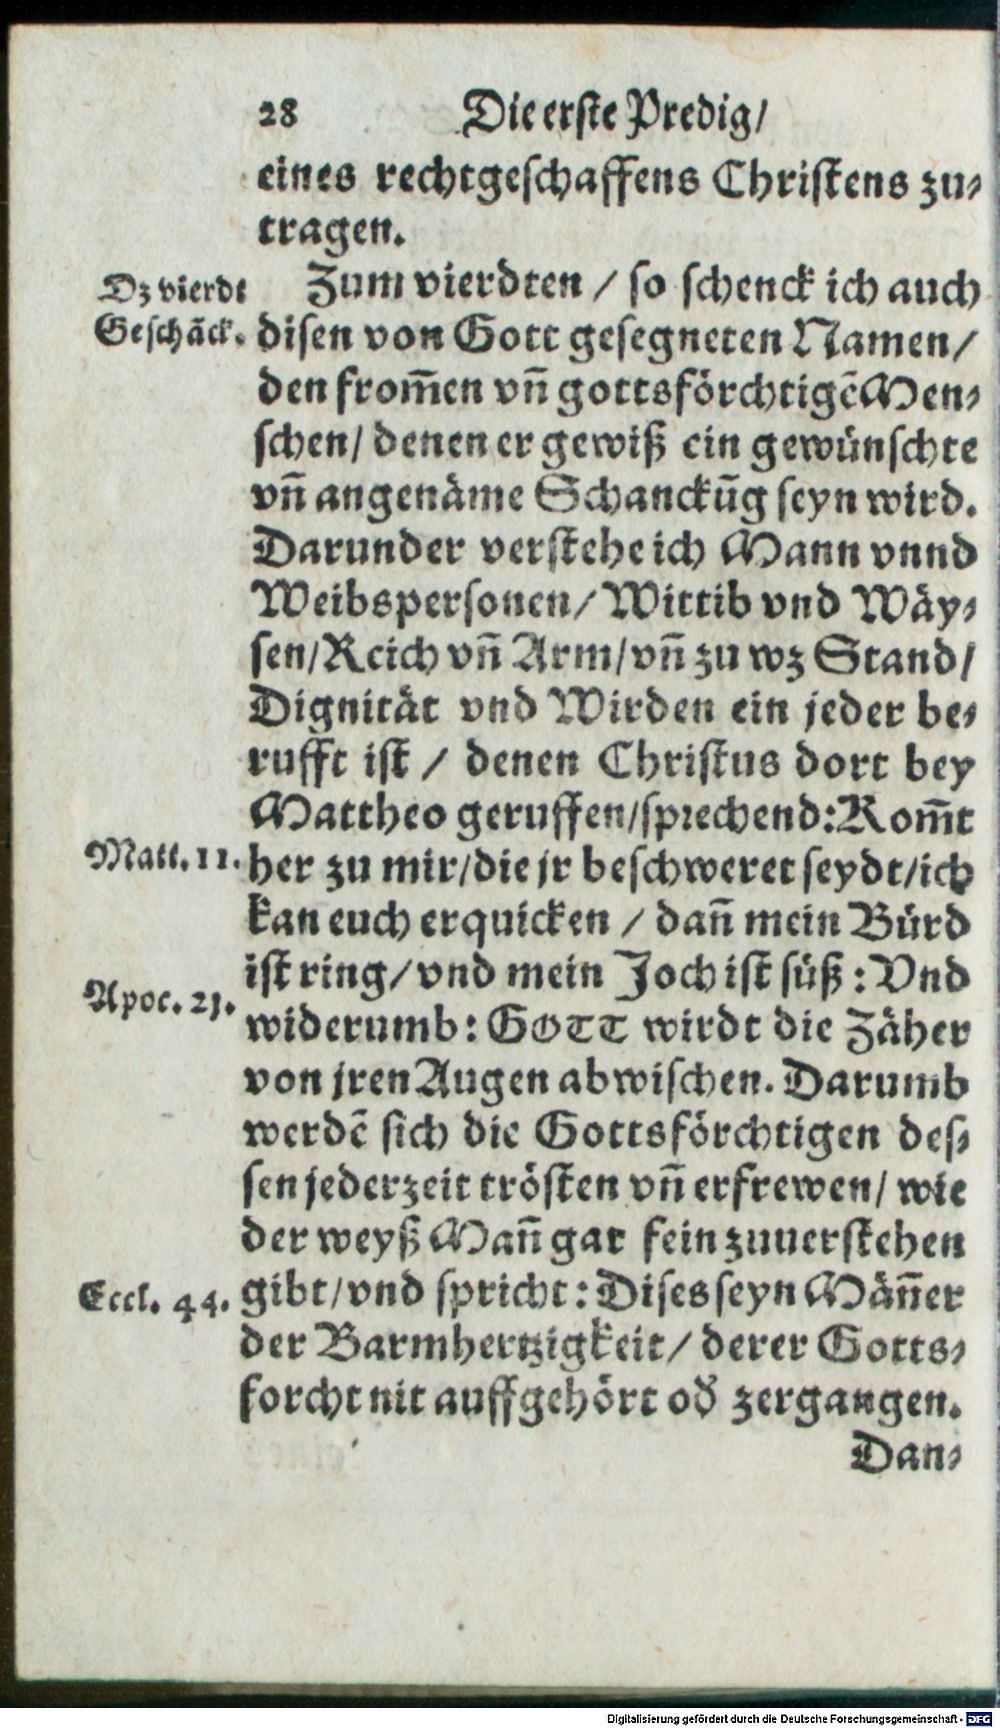 28 Die erste Predig/
eines rechtgeschaffens Christens zu-
tragen.
Dz vierdt
Geschäck.
Zum vierdten / so schenck ich auch
disen von Gott gesegneten Namen /
den from̃en vñ gottsförchtigẽ Men-
schen / denen er gewiß ein gewünschte
vñ angenäme Schanckũg seyn wird.
Darunder verstehe ich Mann vnnd
Weibspersonen / Wittib vnd Wäy-
sen / Reich vñ Arm / vñ zu wz Stand /
Dignität vnd Wirden ein jeder be-
rufft ist / denen Christus dort bey
Mattheo geruffen / sprechend: Kom̃t
Matt. 11.
her zu mir / die jr beschweret seydt / ich
kan euch erquicken / dañ mein Bürd
ist ring / vnd mein Joch ist süß: Vnd
Apoc. 21.
widerumb: GOTT wirdt die Zäher
von jren Augen abwischen. Darumb
werdẽ sich die Gottsförchtigen des-
sen jederzeit trösten vñ erfrewen / wie
der weyß Mañ gar fein zuuerstehen
Eccl. 44.
gibt / vnd spricht: Dises seyn Mäñer
der Barmhertzigkeit / derer Gotts-
forcht nit auffgehört od̃ zergangen.
Dan-
Digitalisierung gefördert durch die Deutsche Forschungsgemeinschaft - DFG